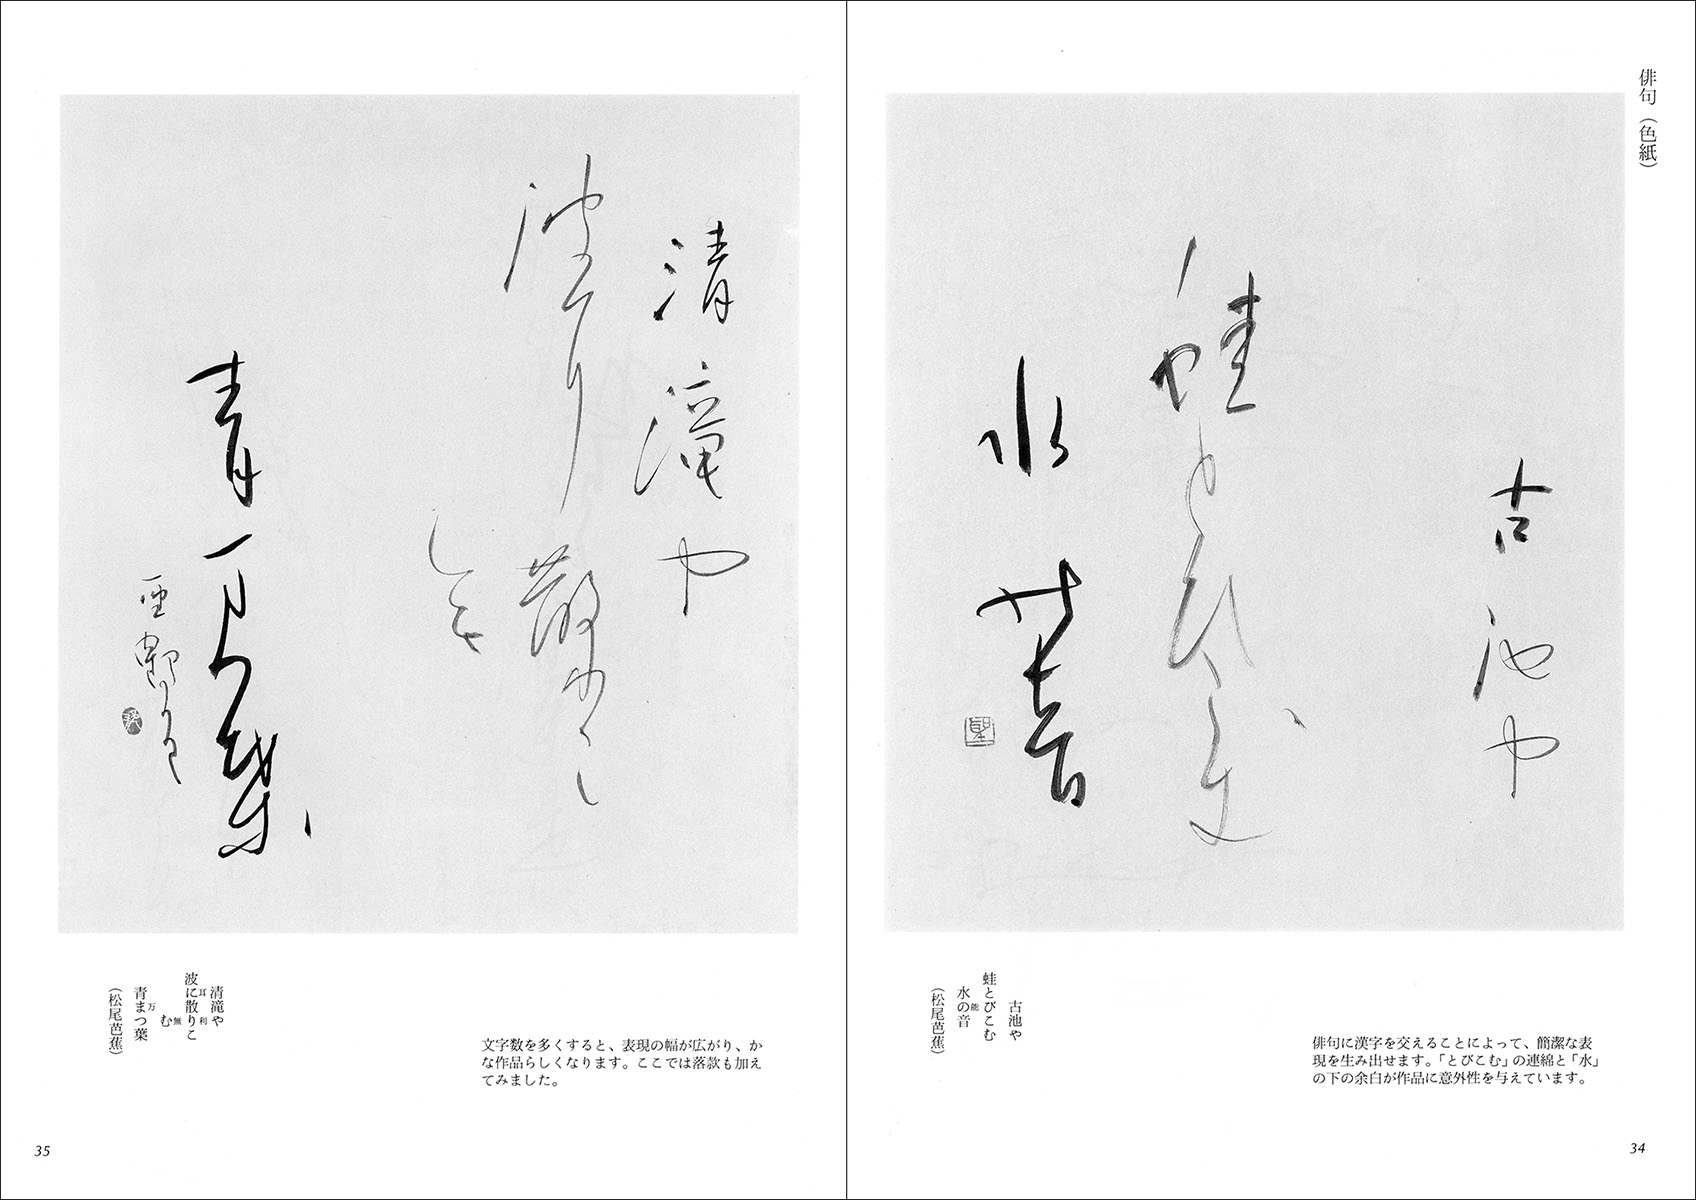 俳句（色紙）
古池や
蛙とびこむ
水
能音
古池や
蛙とびこむ
水の能音
（松尾芭蕉）
俳句に漢字を交えることによって、簡潔な表
現を生み出せます。「とびこむ」の連綿と「水」
の下の余白が作品に意外性を与えています。
34
清滝や
波耳散利こ
無
青万つ葉
清滝や
波に耳散り利こ
む無
青ま万つ葉
（松尾芭蕉）
文字数を多くすると、表現の幅が広がり、か
な作品らしくなります。ここでは落款も加え
てみました。
35